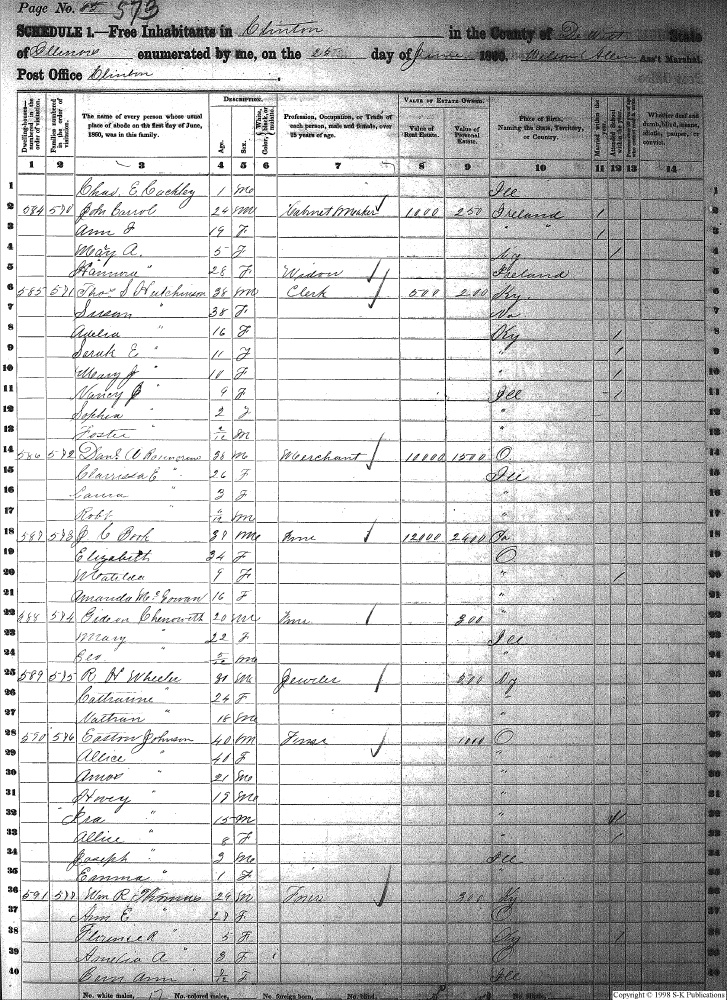 Page No. 573
SCHEDULE 1.—Free Inhabitants in Clinton in the County of De Witt State
of Illinois enumerated by me, on the 26 day of June 1860. Ass't Marshal.
Post Office Clinton
Dwelling-houses—numbered in the order of visitation.
Families numbered in the order of visitation.
The name of every person whose usual place of abode on the first day of June, 1860, was in this family.
DESCRIPTION.
Age.
Sex.
Color, White, black, or mulatto.
Profession, Occupation, or Trade of each person, male and female, over 15 years of age.
VALUE OF ESTATE OWNED.
Value of Real Estate.
Value of Personal Estate.
Place of Birth, Naming the State, Territory, or Country.
Married within the year.
Attended School within the year.
Whether deaf and dumb, blind, insane, idiotic, pauper, or convict.
1 2 3 4 5 6 7 8 9 10 11 12 13 14
1 Chas. E Cackley 1 M Ill
2 584 570 John Carrol 24 M Cabinet Maker 1000 250 Ireland / 2
3 Ann F 19 F " " / 3
4 Mary A. 5 F / 4
5 Hannora " 28 F Widow Ireland 5
6 585 571 Thos S Hutchinson 38 M Clerk 500 200 Ky. 6
7 Susan " 38 F Va 7
8 Adelia " 16 F Ky / 8
9 Sarah E " 11 F " / 9
10 Mary J " 10 F " / 10
11 Nancy " 9 F Ill / 11
12 Sophia " 2 F " 12
13 Foster " M " 13
14 586 572 Danl 38 M Merchant 10000 1500 O. 14
15 Clarrissa E " 26 F Ill 15
16 Laura " 3 F " 16
17 Robt " M " 17
18 587 573 J C Bork 37 M 12000 2400 Pa 18
19 Elizabeth 34 F O 19
20 Matilda 9 F " / 20
21 Amanda McGowan 16 F " 21
22 588 574 Gideon Chenowith 20 M 300 " 22
23 Mary " 22 F Ill 23
24 Geo. " M " 24
25 589 575 R H Wheeler 30 M Jeweler 500 25
26 Cathrine " 24 F " 26
27 Nathan " 18 M " 27
28 590 576 Easton Johnson 40 M 1000 O 28
29 Allice " 40 F " 29
30 Amos " 21 M " 30
31 Hovey " 19 M " 31
32 Ira " 15 M " / 32
33 Allice " 8 F " / 33
34 Joseph " 3 M Ill 34
35 Emma " 1 F " 35
36 591 577 Wm R Thomas 29 M 300 Ky 36
37 Ann E " 27 F O 37
38 Florence R " 5 F Ky / 38
39 Amelia A " 3 F O 39
40 Ann F Ill 40
No. white males, 17 No. colored males, No. foreign born, No. blind,
Copyright © 1998 S-K Publications